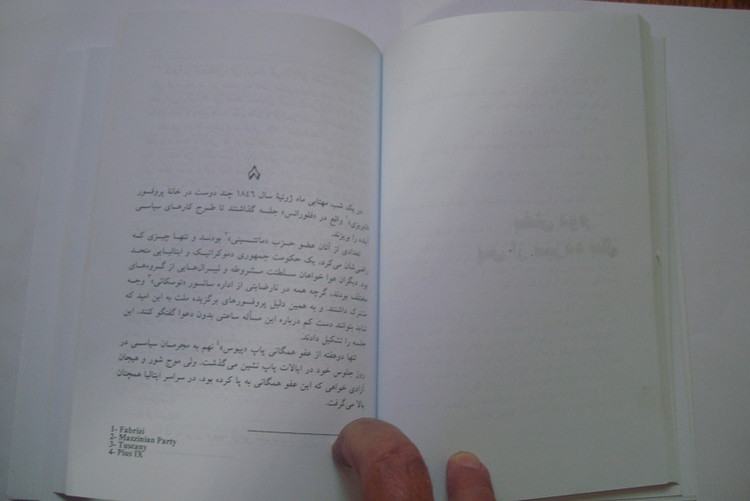 ۸
در یک شب مهتابی ماه ژوئیهٔ سال ۱۸۴۶ چند دوست در خانهٔ پروفسور
«فابریزی»۱ واقع در «فلورانس» جلسه گذاشتند تا طرح کارهای سیاسی
آینده را بریزند.
تعدادی از آنان عضو حزب «ماتسینی»۲ بودند و تنها چیزی که
راضی‌شان می‌کرد، یک حکومت جمهوری دموکراتیک و ایتالیایی متحد
بود. دیگران هوا خواهان سلطنت مشروطه و لیبرال‌هایی از گروه‌های
مختلف بودند. گرچه همه در نارضایتی از اداره سانسور «توسکانی»۳ وجه
مشترک داشتند. و به همین دلیل پروفسورهای برگزیده ملت به این امید که
شاید بتوانند دست کم درباره این مسأله ساعتی بدون دعوا گفتگو کنند. این
جلسه را تشکیل دادند.
تنها دوهفته از عفو همگانی پاپ «پیوس»۴ نهم به مجرمان سیاسی در
روز جلوس خود در ایالات پاپ نشین می‌گذشت. ولی موج شور و هیجان
آزادی خواهی که این عفو همگانی به پا کرده بود، در سراسر ایتالیا همچنان
بالا می‌گرفت.
1- Fabrizi
2- Mazzinian Party
3- Tuscany
4- Pius IX